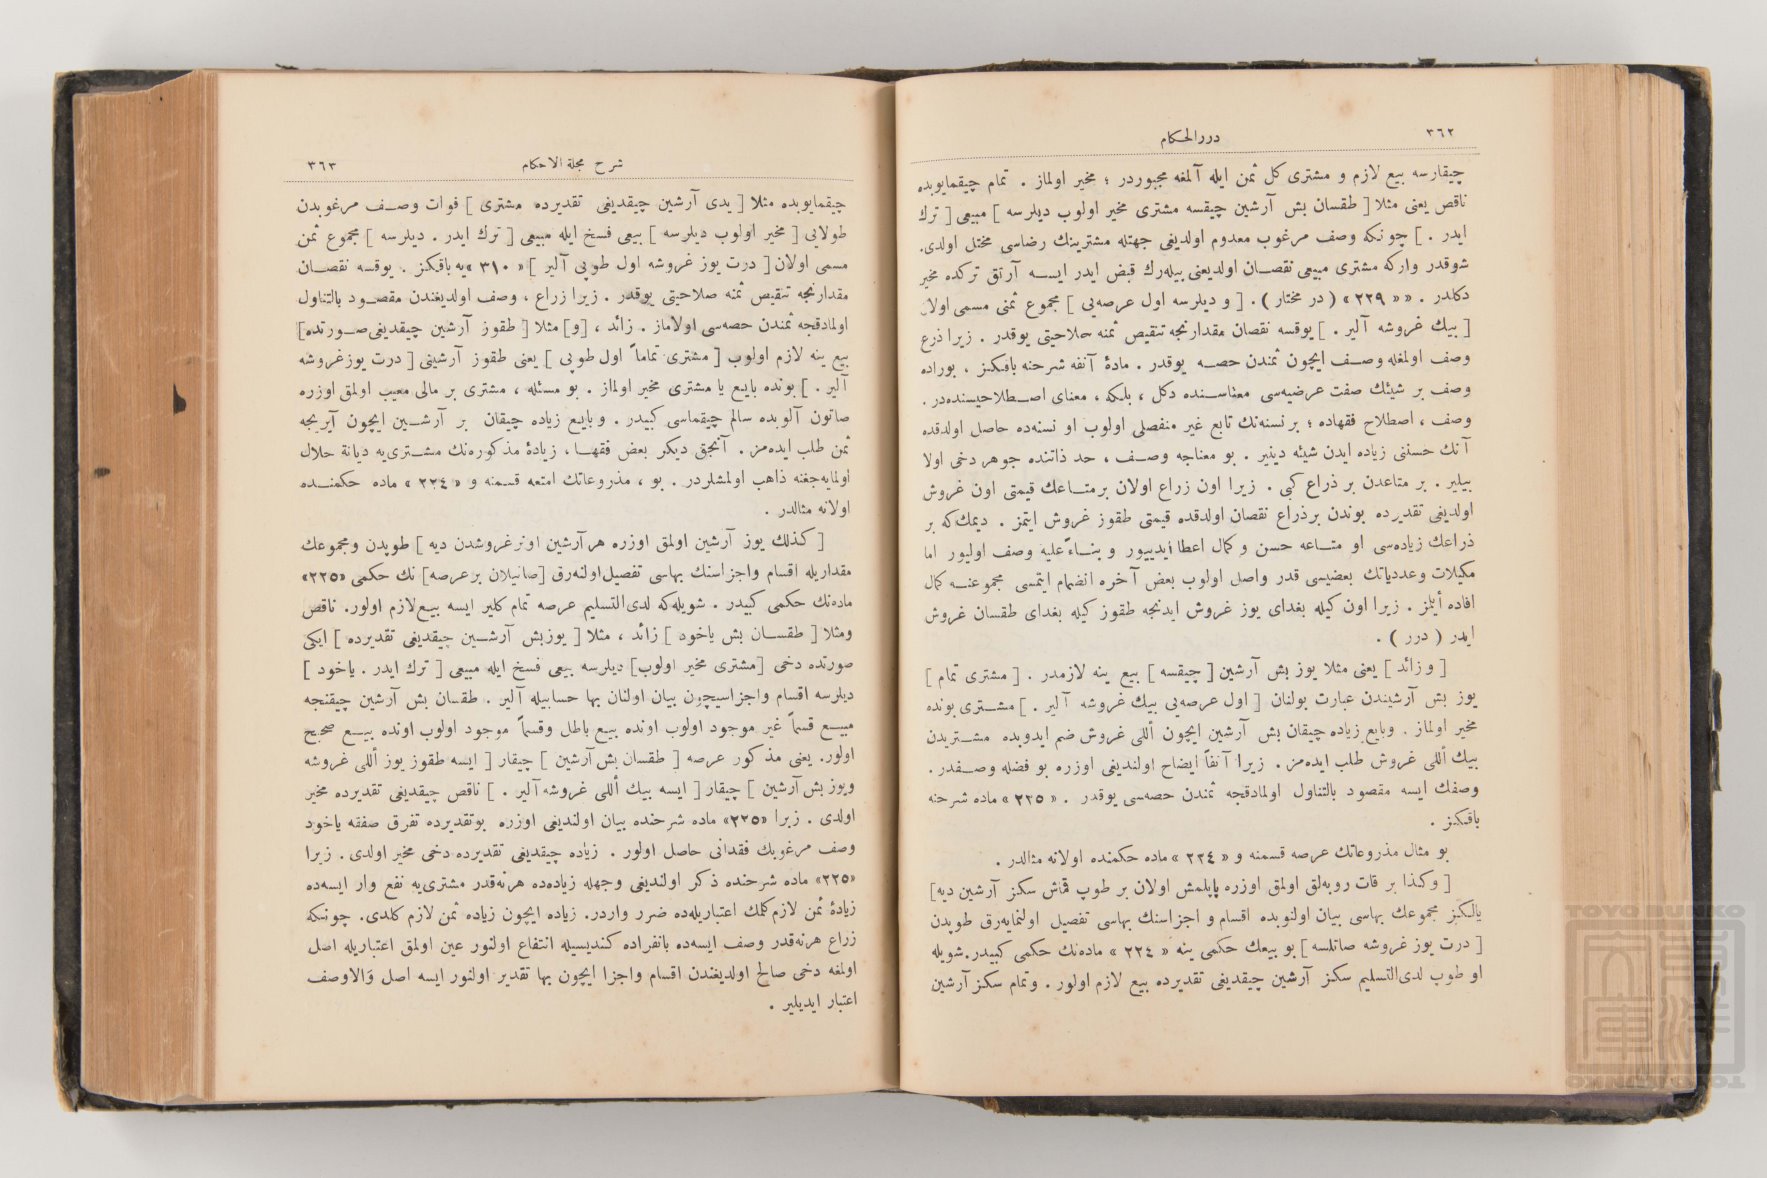 ٣٦٢
دررالحكام
چيقارسه بيع لازم و مشترى كل ثمن ايله آلمغه مجبوردر ؛ مخير اولماز . تمام چيقمايوبده
ناقص يعنى مثلا [ طقسان بش آرشين چيقسه مشترى مخير اولوب ديلرسه ] مبيعى [ ترك
ايدر . ] چونكه وصف مرغوب معدوم اولديغى جهتله مشترينك رضاسى مختل اولدى.
شوقدر واركه مشترى مبيعى نقصان اولديغنى بيله‌رك قبض ايدر ايسه آرتق تركده مخير
دكلدر . « « ٢٢٩ » ( در مختار ) . [ و ديلرسه اول عرصه‌يى ] مجموع ثمنى مسمى اولان
[ بيك غروشه آلير . ] يوقسه نقصان مقدارنجه تنقيص ثمنه صلاحيتى يوقدر . زيرا ذرع
وصف اولمغله وصف ايچون ثمندن حصه يوقدر . مادۀ آنفه شرحنه باقكز . بوراده
وصف بر شيئك صفت عرضيه‌سى معناسنده دكل ، بلكه ، معناى اصطلاحيسنده‌در .
وصف ، اصطلاح فقهاده ؛ برنسنه‌نك تابع غير منفصلى اولوب او نسنه‌ده حاصل اولدقده
آنك حسننى زياده ايدن شيئه دينير . بو معناجه وصف ، حد ذاتنده جوهر دخى اولا
بيلير . بر متاعدن بر ذراع كبى . زيرا اون زراع اولان برمتاعك قيمتى اون غروش
اولديغى تقديرده بوندن برذراع نقصان اولدقده قيمتى طقوز غروش ايتمز . ديمك‌كه بر
ذراعك زياده‌سى او متاعه حسن و كمال اعطا ايدييور و بناءً عليه وصف اوليور اما
مكيلات وعددياتك بعضيسى قدر واصل اولوب بعض آخره انضمام ايتمسى مجموعنه كمال
افاده أيلمز . زيرا اون كيله بغداى يوز غروش ايدنجه طقوز كيله بغداى طقسان غروش
ايدر ( درر ) .
[ و زائد ] يعنى مثلا يوز بش آرشين [ چيقسه ] بيع ينه لازمدر . [ مشترى تمام ]
يوز بش آرشيندن عبارت بولنان [ اول عرصه‌يى بيك غروشه آلير . ] مشترى بونده
مخير اولماز . وبايع زياده چيقان بش آرشين ايچون أللى غروش ضم ايدوبده مشتريدن
بيك أللى غروش طلب ايده‌مز . زيرا آنفاً ايضاح اولنديغى اوزره بو فضله وصفدر .
وصفك ايسه مقصود بالتناول اولمادقجه ثمندن حصه‌سى يوقدر . « ٢٢٥ » ماده شرحنه
باقكز .
بو مثال مذروعاتك عرصه قسمنه و « ٢٢٤ » ماده حكمنده اولانه مثالدر .
[ وكذا بر قات روبه‌لق اولمق اوزره يا‌پلمش اولان بر طوپ قماش سكز آرشين ديه]
يالكز مجموعك بهاسى بيان اولنوبده اقسام و اجزاسنك بهاسى تفصيل اولنمايه‌رق طوپدن
[ درت يوز غروشه صاتلسه ] بو بيعك حكمى ينه « ٢٢٤ » ماده‌نك حكمى كبيدر.شويله
او طوپ لدى‌التسليم سكز آرشين چيقديغى تقديرده بيع لازم اولور . وتمام سكز آرشين
شرح مجلة الاحكام
٣٦٣
چيقمايوبده مثلا [ يدى آرشين چيقديغى تقديرده مشترى ] فوات وصف مرغوبدن
طولايى [ مخير اولوب ديلرسه ] بيعى فسخ ايله مبيعى [ ترك ايدر . ديلرسه ] مجموع ثمن
مسمى اولان [ درت يوز غروشه اول طوپى آلير ] « ٣١٠ »يه باقكز . يوقسه نقصان
مقدارنجه تنقيص ثمنه صلاحيتى يوقدر . زيرا زراع ، وصف اولديغندن مقصود بالتناول
اولمادقجه ثمندن حصه‌سى اولاماز . زائد ، [و] مثلا [ طقوز آرشين چيقديغى‌صورتده]
بيع ينه لازم اولوب [ مشترى تماماً اول طوپى ] يعنى طقوز آرشينى [ درت يوزغروشه
آلير . ] بونده بايع يا مشترى مخير اولماز . بو مسئله ، مشترى بر مالى معيب اولمق اوزره
صاتون آلوبده سالم چيقماسى كبيدر . و بايع زياده چيقان بر آرشين ايچون آيريجه
ثمن طلب ايده‌مز . آنجق ديكر بعض فقها ، زيادۀ مذكوره‌نك مشترى‌يه ديانة حلال
اولمايه‌جغنه ذاهب اولمشلردر . بو ، مذروعاتك امتعه قسمنه و « ٢٢٤ » ماده حكمنده
اولانه مثالدر .
[ كذلك يوز آرشين اولمق اوزره هرآرشين اونرغروشدن ديه ] طوپدن ومجموعك
مقداريله اقسام واجزاسنك بهاسى تفصيل‌اولنه‌رق [صاتيلان برعرصه] نك حكمى «٢٢٥»
ماده‌نك حكمى كبيدر . شويله‌كه لدى‌التسليم عرصه تمام كلير ايسه بيع‌لازم اولور. ناقص
ومثلا [ طقسان بش ياخود ] زائد ، مثلا [ يوزبش آرشين چيقديغى تقديرده ] ايكى
صورتده دخى [مشترى مخير اولوب] ديلرسه بيعى فسخ ايله مبيعى [ ترك ايدر . ياخود ]
ديلرسه اقسام واجزاسيچون بيان اولنان بها حسابيله آلير . طقسان بش آرشين چيقنجه
مبيع قسماً غير موجود اولوب اونده بيع باطل وقسماً موجود اولوب اونده بيع صحيح
اولور. يعنى مذكور عرصه [ طقسان بش‌آرشين ] چيقار [ ايسه طقوز يوز أللى غروشه
ويوز بش آرشين ] چيقار [ ايسه بيك أللى غروشه آلير . ] ناقص چيقديغى تقديرده مخير
اولدى . زيرا «٢٢٥» ماده شرحنده بيان اولنديغى اوزره بوتقديرده تفرق صفقه ياخود
وصف مرغوبك فقدانى حاصل اولور . زياده چيقديغى تقديرده دخى مخير اولدى . زيرا
«٢٢٥» ماده شرحنده ذكر اولنديغى وجهله زياده‌ده هرنه‌قدر مشترى‌يه نفع وار ايسه‌ده
زيادۀ ثمن لازم‌كلمك اعتباريله‌ده ضرر واردر. زياده ايچون زياده ثمن لازم كلدى. چونكه
زراع هرنه‌قدر وصف ايسه‌ده بانفراده كنديسيله انتفاع اولنور عين اولمق اعتباريله اصل
اولمغه دخى صالح اولديغندن اقسام واجزا ايچون بها تقدير اولنور ايسه اصل وَالاوصف
اعتبار ايديلير .
TOYO BUNKO